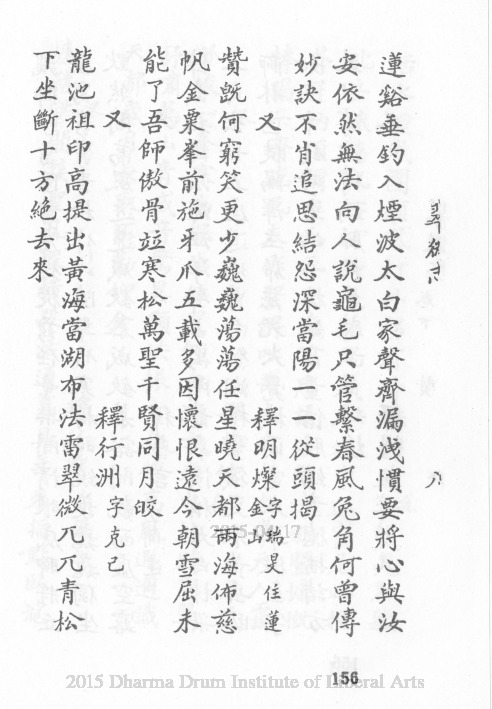 蓮谿垂釣入煙波太白家聲齊漏洩慣要將心與汝
安依然無法向人說龜毛尺管繫春風兔角何曾傳
妙訣不肖追思結怨深當陽一一從頭揭
又
釋明燦字瑞昊住蓮金山
贊既何窮笑更少巍巍蕩蕩任星曉天都兩海佈慈
帆金粟峯前施牙爪五載多因懷恨遠今朝雪屈未
能了吾師傲骨竝寒松萬聖千賢同月皎
又
釋行洲字克己
龍池祖印高提出黃海當湖布法雷翠微兀兀青松
下坐斷十方絕去來
八
2015-04-17
156
2015 Dharma Drum Institute of Liberal Arts